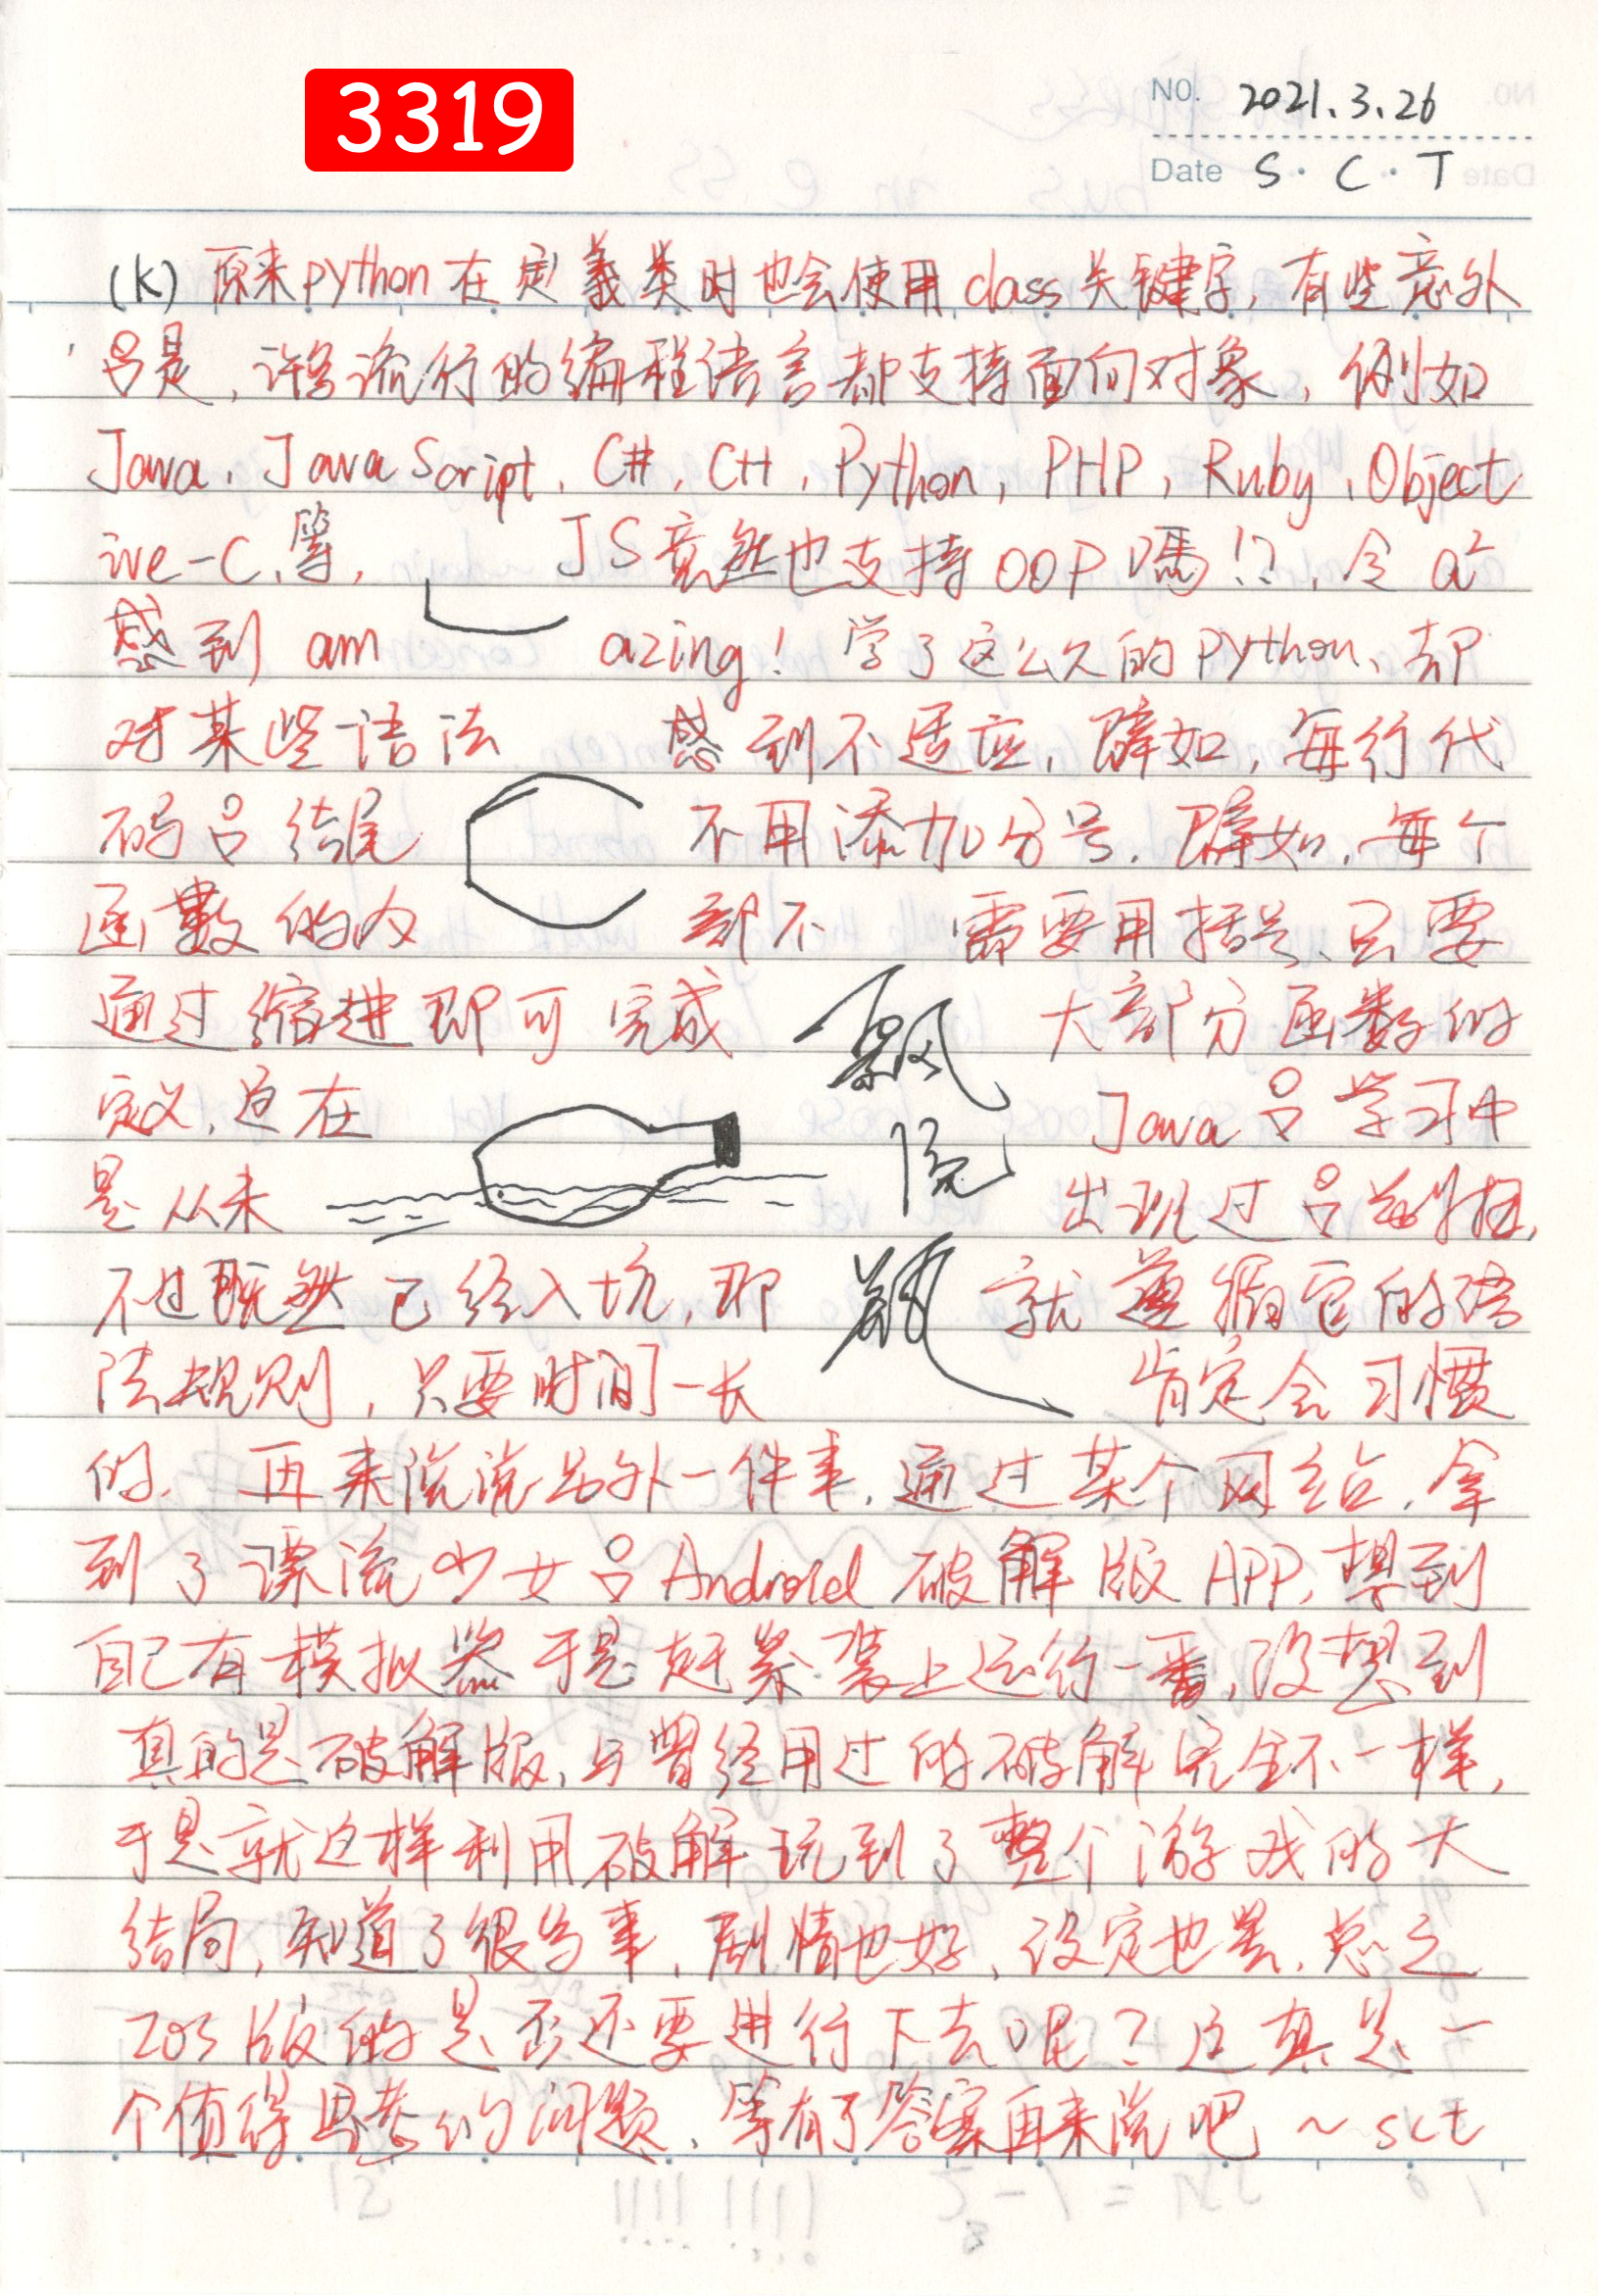 3319
NO. 2021.3.26
Date S·C·T
(K) 原来python在定義类时也会使用class关键字,有些意外
呂是,许多流行的编程语言都支持面向对象,例如
Java、JavaScript、C#、C++、Python、PHP、Ruby、Object
ive-C等, JS竟然也支持OOP嗎!?,令a²
感到am azing! 学了这么久的python、却
对某些语法 感到不适应,譬如,每行代
码呂结尾 不用添加分号,譬如,每个
函數的内 部不 需要用括号、只要
通过缩进即可完成 飘 大部分函数的
定义,这在 Java呂学习中
是从未 流 出现过呂
不过既然已经入坑,那 瓶 就遵循它的语
法规则,只要时间一长 肯定会习惯
的. 再来说说另外一件事,通过某个网站,拿
到了漂流少女呂Android破解版APP,想到
自己有模拟器于是赶紧装上运行一番,没想到
真的是破解版,与曾经用过的破解完全不一样,
于是就这样利用破解玩到了整个游戏的大
结局,知道了很多事,剧情也好,设定也罢,总之
IOS版的是否还要进行下去呢?这真是一
个值得思考的问题、等有了答案再来说吧 ~sct